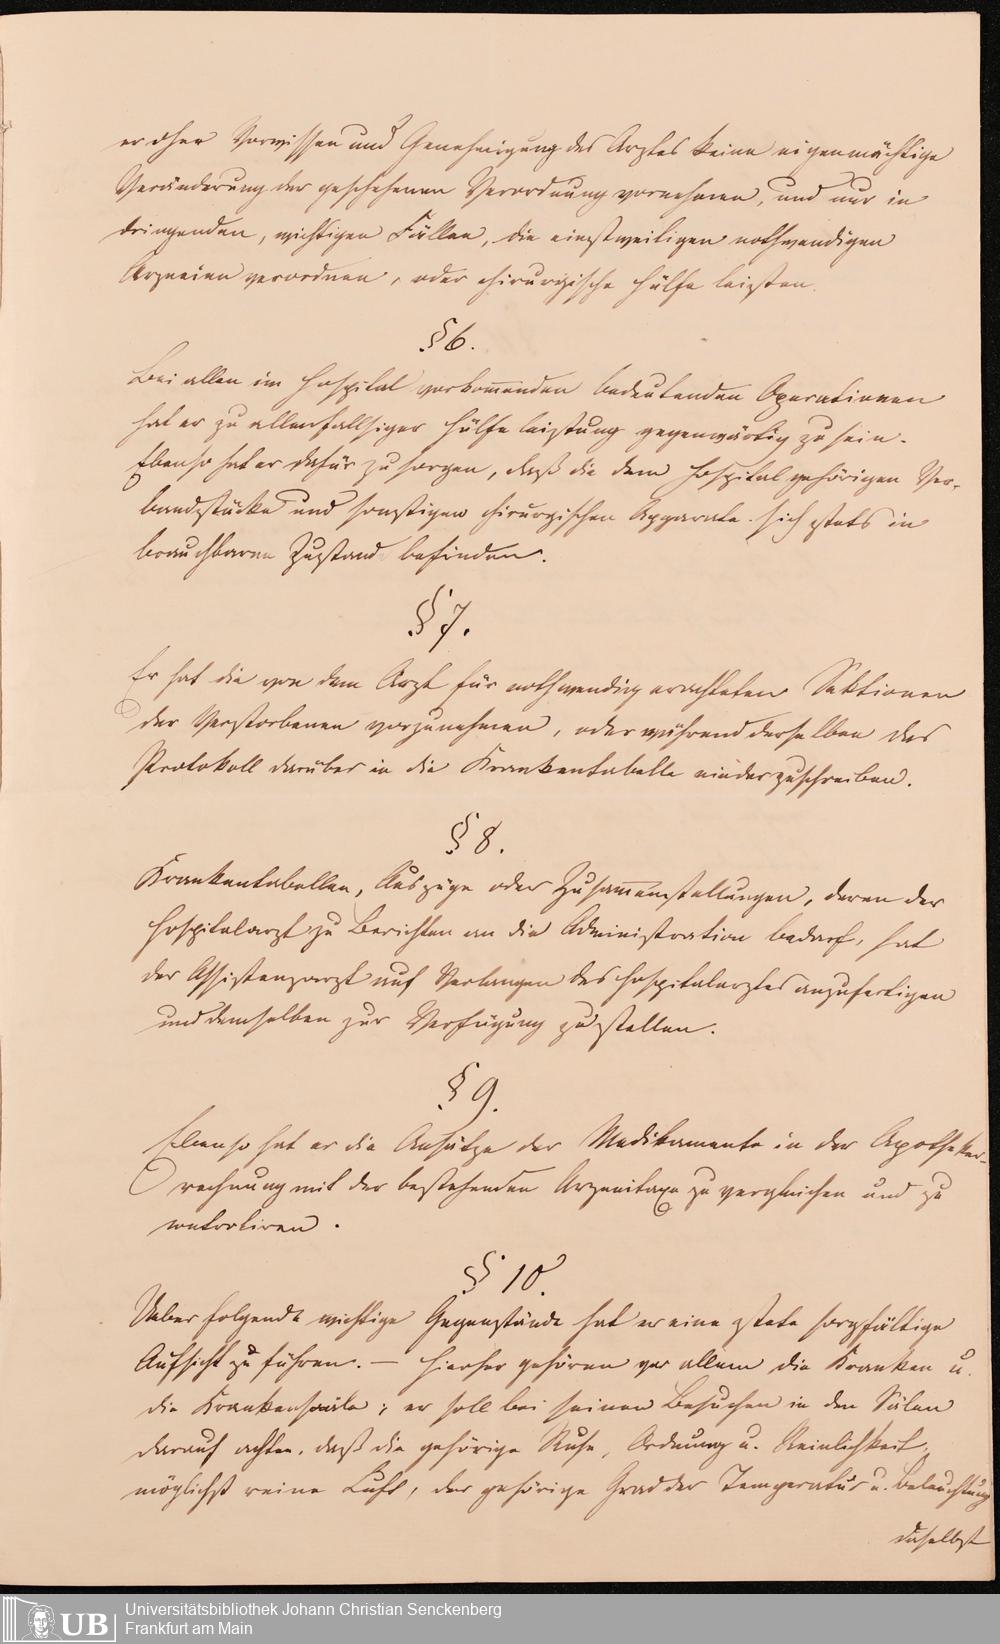 er ohne Vorwissen und Genehmigung des Arztes keine eigenmächtige
Veränderung der geschehenen Verordnung vornehmen, und nur in
dringenden, wichtigen Fällen, die einstweiligen nothwendigen
Arzneien verordnen, oder chirurgische Hülfe leisten.
§ 6.
Bei allen im Hospital vorkom̅enden bedeutenden Operationen
hat er zu allenfallsiger Hülfeleistung gegenwärtig zu sein.
Ebenso hat er dafür zu sorgen, daß die dem Hospital gehörigen Ver-
bandstücke und sonstigen chirurgischen Apparate sich stets in
brauchbaren Zustand befinden.
§ 7.
Er hat die von dem Arzt für nothwendig erachteten Sektionen
der Verstorbenen vorzunehmen, oder während derselben das
Protokoll darüber in die Krankentabelle niederzuschreiben.
§ 8.
Krankentabellen, Auszüge oder Zusam̅enstellungen, deren der
Hospitalarzt zu Berichten an die Administration bedarf, hat
der Assistenzarzt auf Verlangen des Hospitalarztes anzufertigen
und demselben zur Verfügung zu stellen.
§ 9.
Ebenso hat er die Ansätze der Medikamente in der Apotheker-
rechnung mit der bestehenden Arzneitaxe zu vergleichen und zu
§ 10.
Ueber folgende wichtige Gegenstände hat er eine stete sorgfältige
Aufsicht zu führen. — Hierher gehören vor allem die Kranken u.
die Krankensäle; er soll bei seinen Besuchen in den Sälen
darauf achten, daß die gehörige Ruhe, Ordnung u. Reinlichkeit,
möglichst reine Luft, der gehörige Grad der Temperatur u. Beleuchtung
daselbst
UB
Universitätsbibliothek Johann Christian Senckenberg
Frankfurt am Main